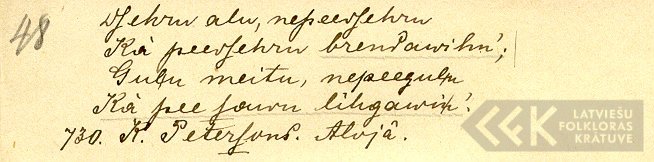 48
Dsehru alu, nepeedsehru
Kà peedsehru brendawihn';
Guļu meitu, nepeeguļu
Kà pee sawu lihgawiņ'.
730. K. Petersons. Alojâ.
LATVIEŠU
FOLKLORAS
KRĀTUVE